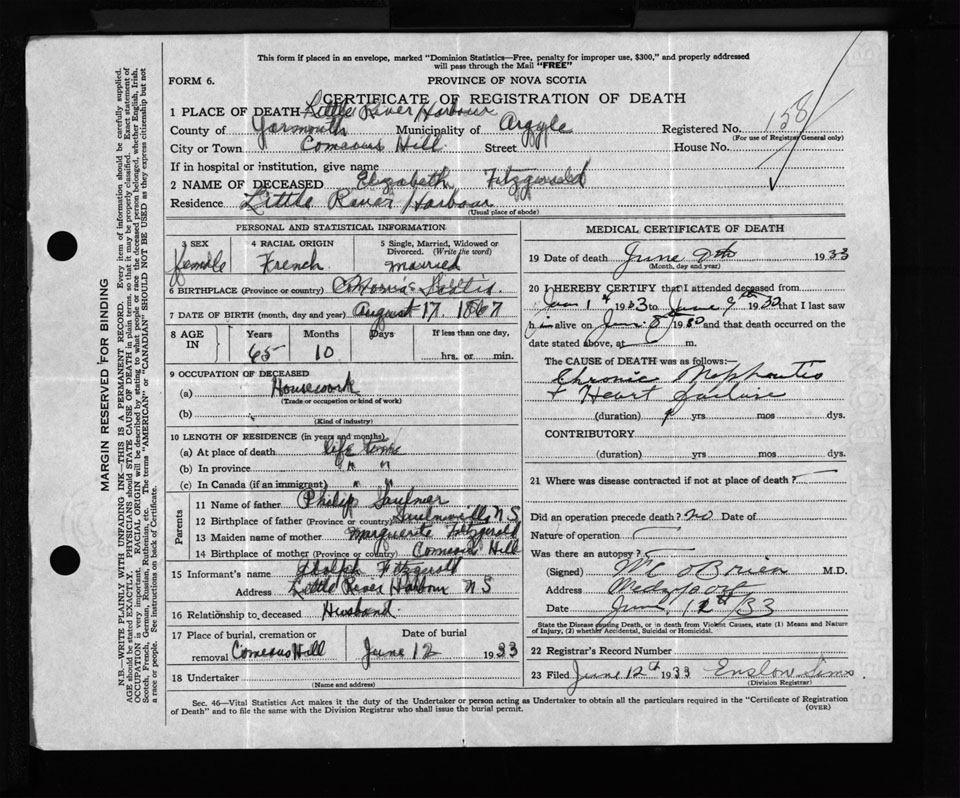 This form if placed in an envelope, marked "Dominion Statistics—Free, penalty for improper use, $300," and properly addressed
will pass through the Mail "FREE"
FORM 6.
PROVINCE OF NOVA SCOTIA
CERTIFICATE OF REGISTRATION OF DEATH
1 PLACE OF DEATH Little River Harbour
County of Yarmouth Municipality of Argyle Registered No. 158
(For use of Registrar General only)
City or Town Comeaus Hill Street House No.
If in hospital or institution, give name
2 NAME OF DECEASED Elizabeth Fitzgerald
Residence Little River Harbour
(Usual place of abode)
PERSONAL AND STATISTICAL INFORMATION
3 SEX 4 RACIAL ORIGIN 5 Single, Married, Widowed or
Divorced. (Write the word)
female French married
6 BIRTHPLACE (Province or country) Nova Scotia
7 DATE OF BIRTH (month, day and year) August 17. 1867
8 AGE IN Years Months Days If less than one day,
65 10 hrs. or min.
9 OCCUPATION OF DECEASED
(a) Housework
(Trade or occupation or kind of work)
(b)
(Kind of industry)
10 LENGTH OF RESIDENCE (in years and months)
(a) At place of death life time
(b) In province " "
(c) In Canada (if an immigrant) " "
Parents
11 Name of father Philip Saulner
12 Birthplace of father (Province or country) NS
13 Maiden name of mother Marguerite Fitzgerald
14 Birthplace of mother (Province or country) Comeaus Hill
15 Informant's name Adolph Fitzgerald
Address Little River Harbour NS
16 Relationship to deceased Husband.
17 Place of burial, cremation or Date of burial
removal Comeaus Hill June 12 1933
18 Undertaker
(Name and address)
MEDICAL CERTIFICATE OF DEATH
19 Date of death June 9th 1933
(Month, day and year)
20 I HEREBY CERTIFY that I attended deceased from
1923 to June 9th 1930 that I last saw
h alive on 8 1930 and that death occurred on the
date stated above, at m.
The CAUSE of DEATH was as follows:—
Chronic
+ Heart failure
(duration) yrs mos dys.
CONTRIBUTORY
(duration) yrs. mos. dys.
21 Where was disease contracted if not at place of death?
Did an operation precede death? no Date of
Nature of operation
Was there an autopsy?
(Signed) O'Brien M.D.
Address
Date June 12th/33
State the Disease causing Death, or in death from Violent Causes, state (1) Means and Nature
of Injury, (2) whether Accidental, Suicidal or Homicidal.
22 Registrar's Record Number
23 Filed June 12th 1933 Enslow Sims
(Division Registrar)
Sec. 46—Vital Statistics Act makes it the duty of the Undertaker or person acting as Undertaker to obtain all the particulars required in the "Certificate of Registration
of Death" and to file the same with the Division Registrar who shall issue the burial permit.
(OVER)
MARGIN RESERVED FOR BINDING
N.B.—WRITE PLAINLY WITH UNFADING INK—THIS IS A PERMANENT RECORD. Every item of information should be carefully supplied.
AGE should be stated EXACTLY. PHYSICIANS should STATE CAUSE OF DEATH in plain terms, so that it may be properly classified. Exact statement of
OCCUPATION is very important. RACIAL ORIGIN will be described by stating to what people or race the deceased person belonged, whether English, Irish,
Scotch, French, German, Russian, Ruthenian, etc. The terms "AMERICAN" or "CANADIAN" SHOULD NOT BE USED as they express citizenship but not
a race or people. See instructions on back of Certificate.